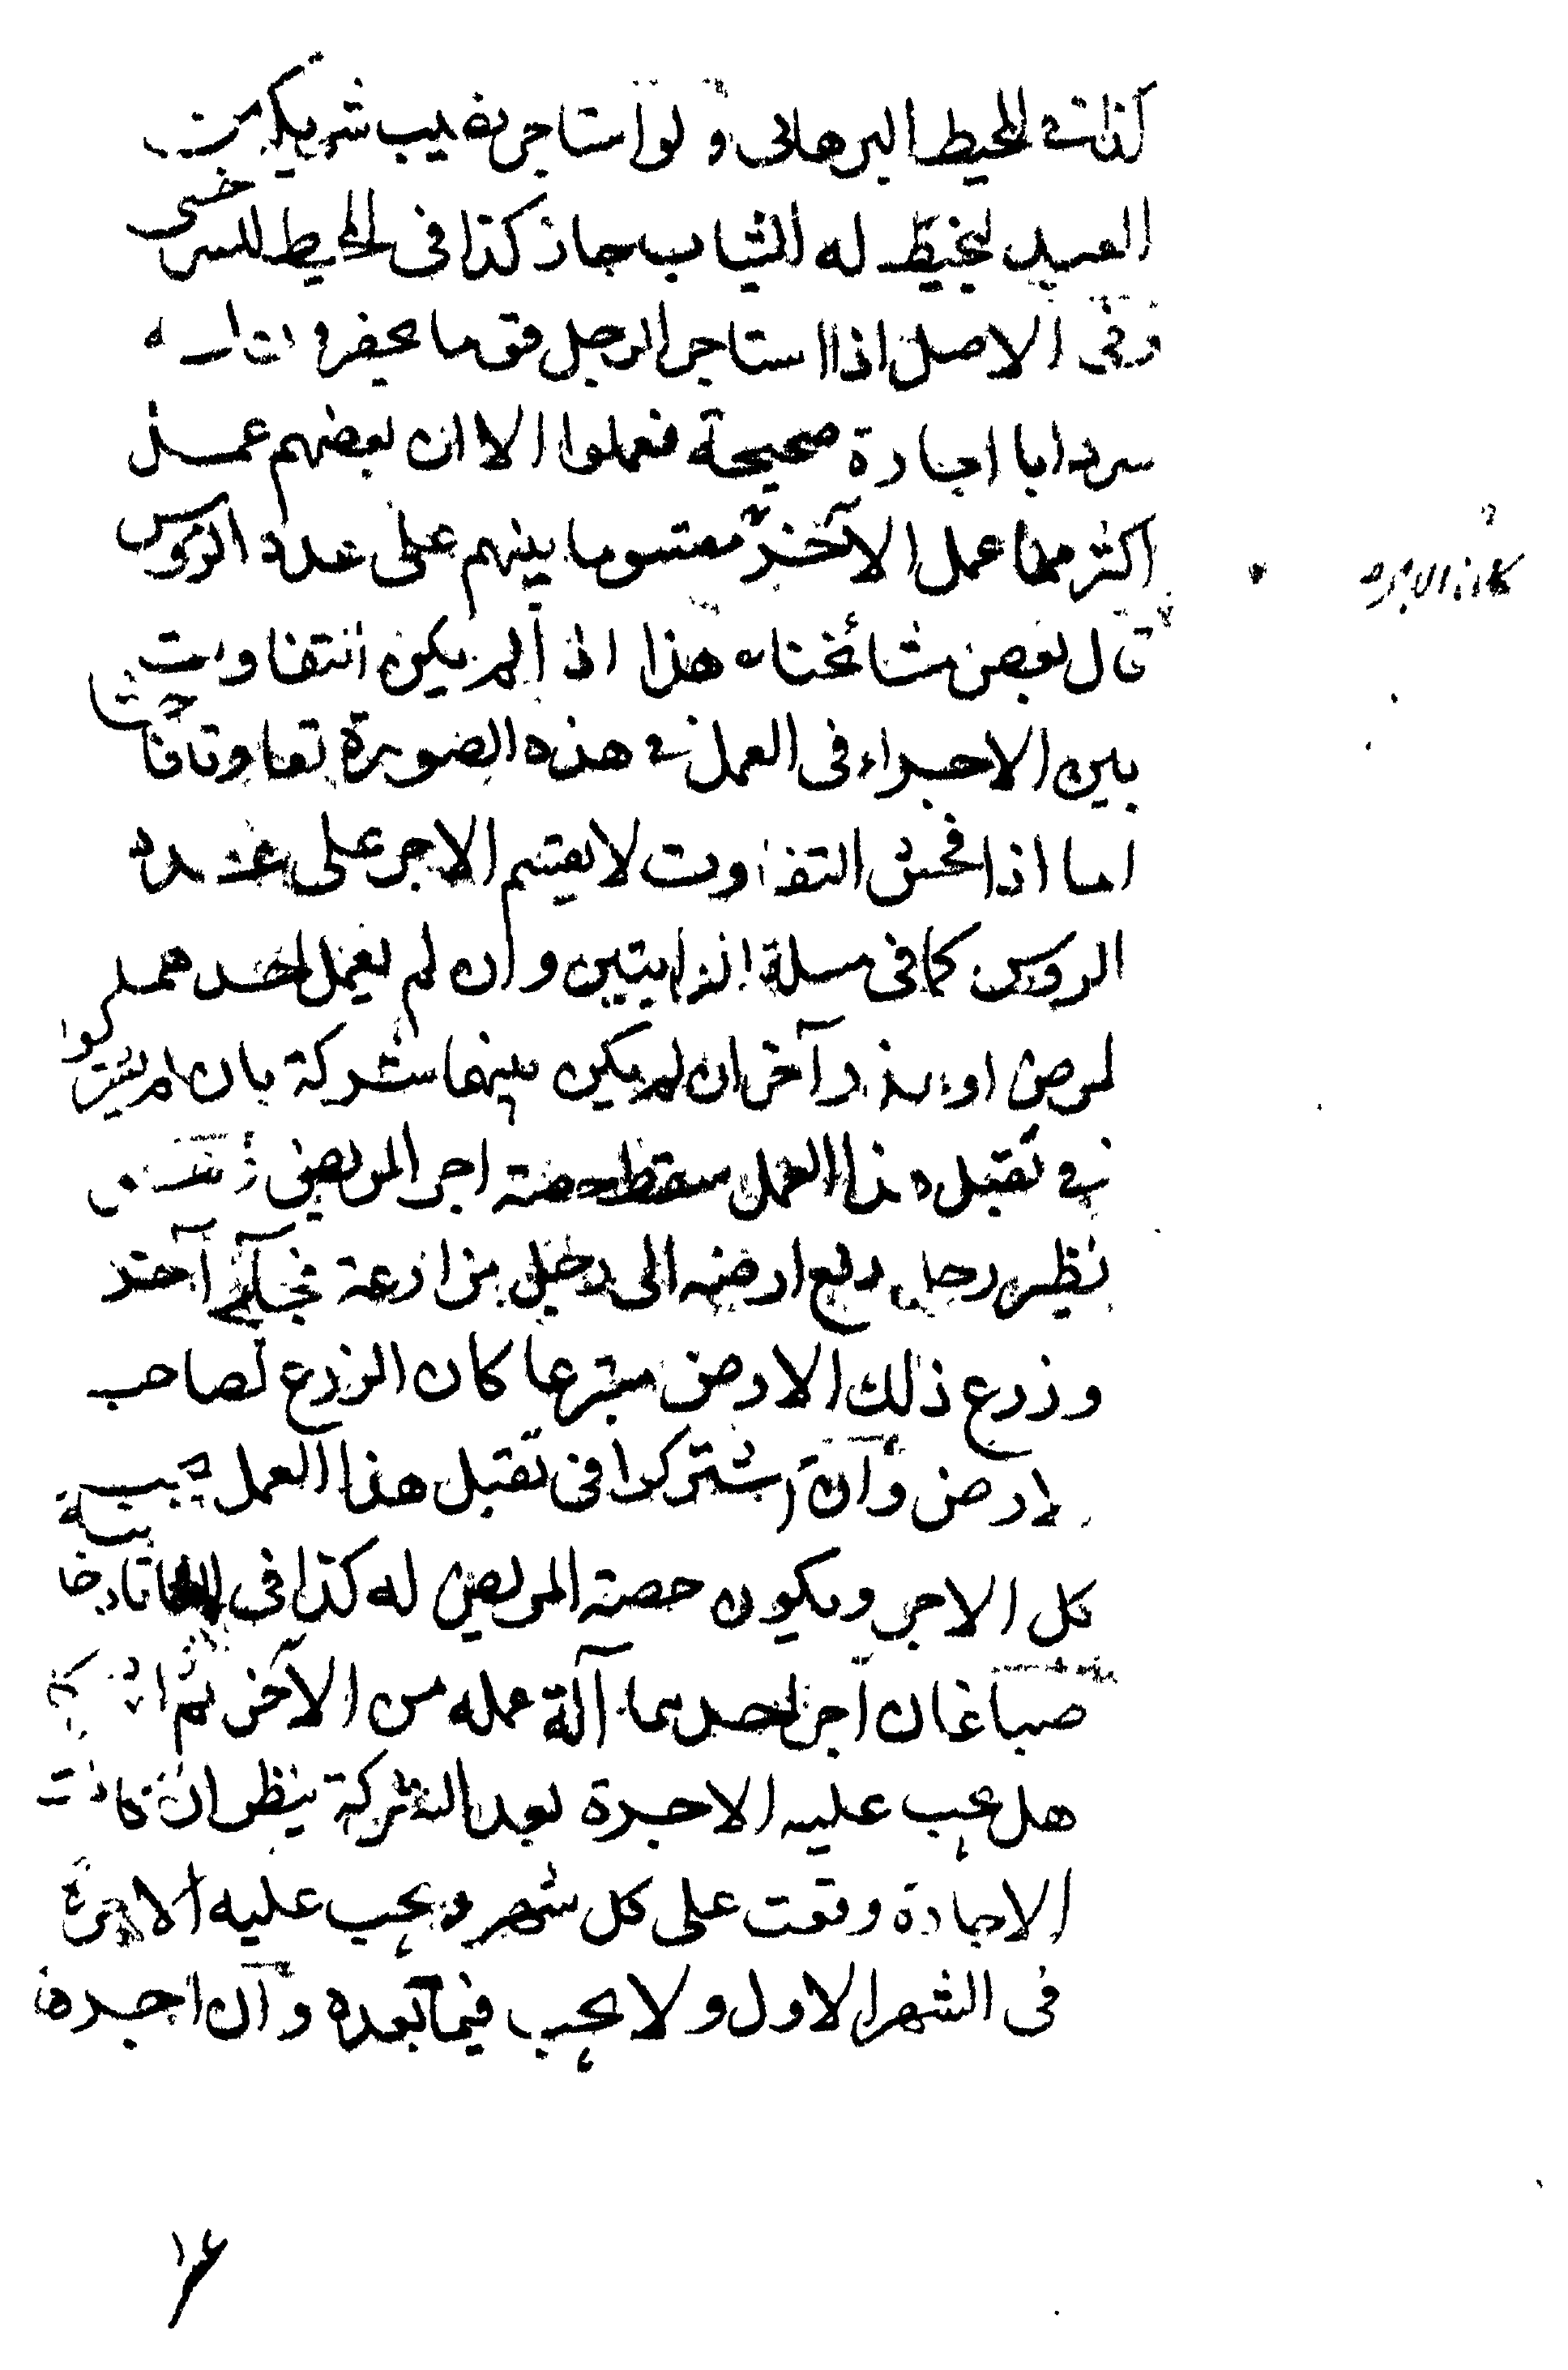 كذا في المحيط البرهاني ولو استاجر نصيب شريكه من
العبد ليخيط له الثياب جاز كذا في المحيط للسرخسي
وفي الاصل اذا استاجر الرجل قوما يحفرون له
سردابا اجارة صحيحة فعملوا الا ان بعضهم عمل
اكثر مما عمل الآخر مقسوما بينهم على عدد الروس
قال بعض مشائخنا هذا اذا لم يكن التفاوت
بين الاجراء في العمل في هذه الصورة تفاوتا فاحشا
اما اذا فحش التفاوت لا يقسم الاجر على عدد
الروس كما في مسلة الدابتين وان لم يعمل احدهم
لمرض او عذر آخر ان لم يكن بينهما شركة بان لم يشتركوا
في تقبل هذا العمل سقط حصة اجر المريض
نظير رجل دفع ارضه الى رجل مزارعة فجاء آخر
وزرع ذلك الارض متبرعا كان الزرع لصاحب
لارض وان اشتركوا في تقبل هذا العمل يجب
كل الاجر ويكون حصة المريض له كذا في التاتارخانية
صباغان آجر احدهما آلة عمله من الآخر ثم اشتركا
هل يجب عليه الاجرة بعد الشركة ينظر ان كانت
الاجارة وقعت على كل شهر يجب عليه الاجرة
في الشهر الاول ولا يجب فيما بعده وان اجره